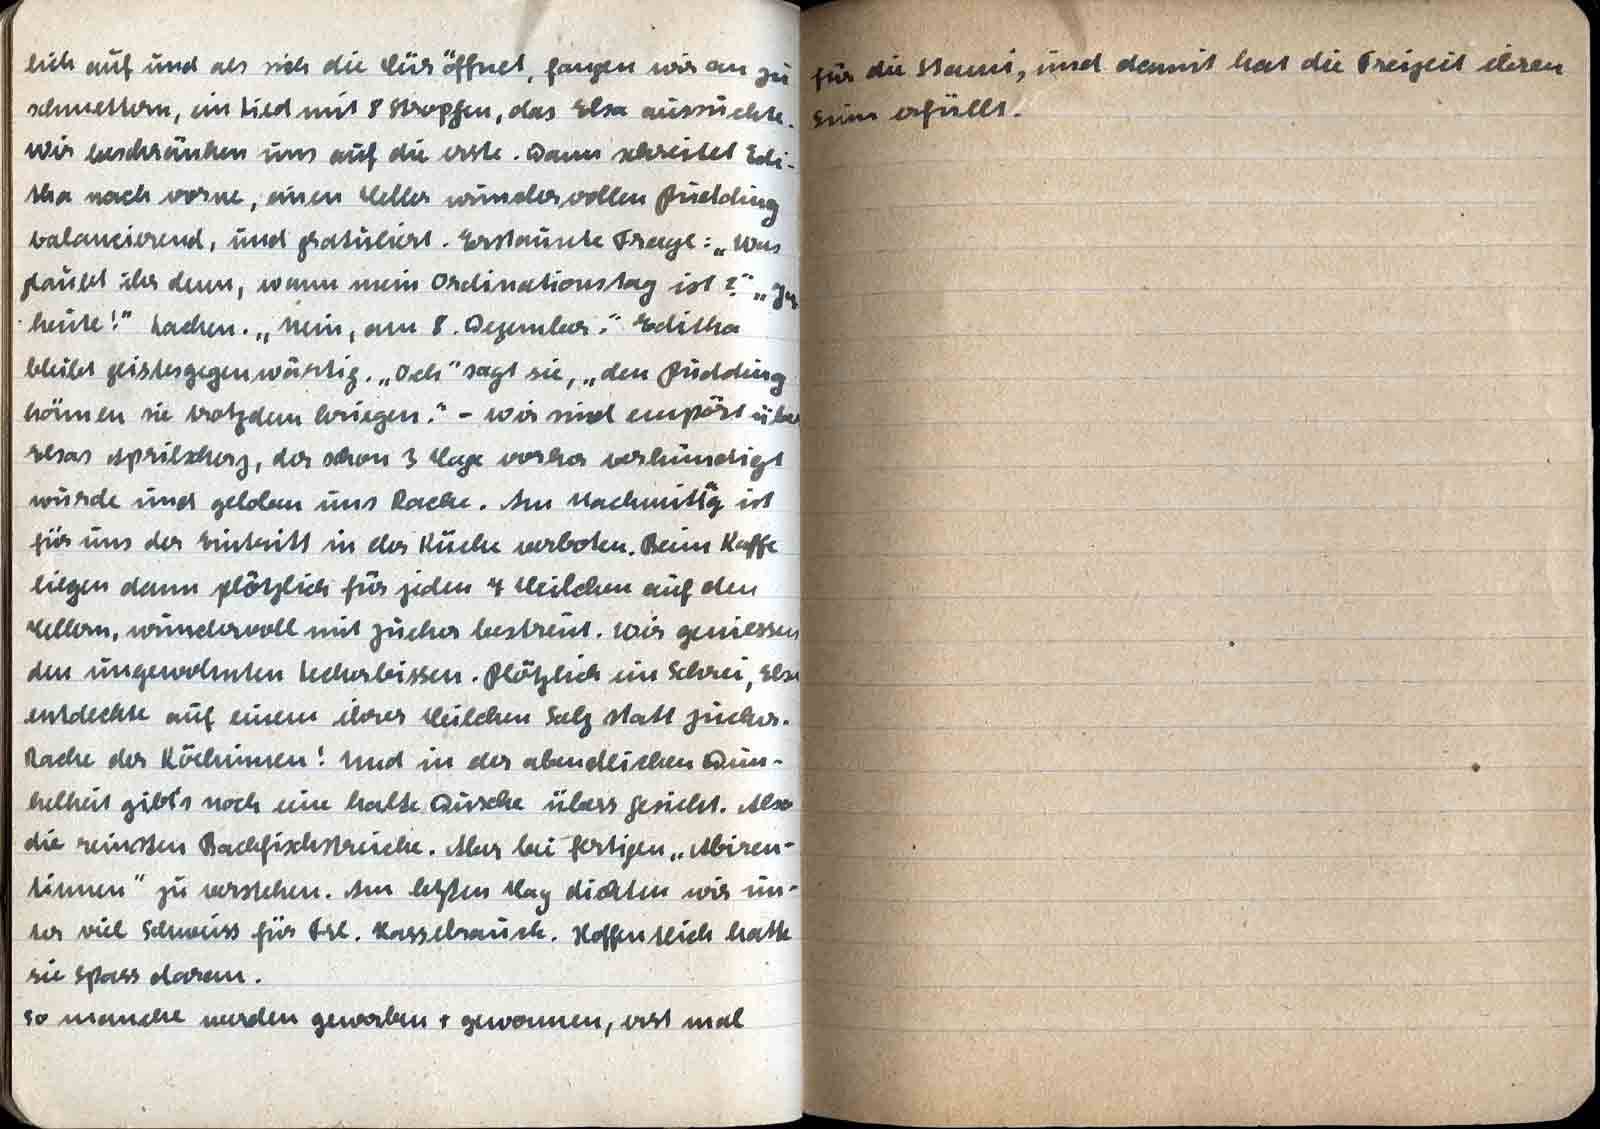 lich auf und als sich die Tür öffnet, fangen wir an zu
schmettern, ein Lied mit 8 Stropfen, das Elsa aussuchte.
Wir beschränken uns auf die erste. Dann schreitet Edi-
tha nach vorne, einen Teller wundervollen Pudding
balancierend, und gratuliert. Erstaunte Frage: „Was
glaubt ihr denn, wann mein Ordinationstag ist?" „Ja
heute!" Lachen. „Nein, am 8. Dezember." Editha
bleibt geistesgegenwärtig. „Och" sagt sie, „den Pudding
können sie trotzdem kriegen." – Wir sind empört über
Elsas Aprilscherz, der schon 3 Tage vorher verkündigt
wurde und geloben uns Rache. Am Nachmittag ist
für uns der Eintritt in der Küche verboten. Beim Kaffe
liegen dann plötzlich für jeden 4 Teilchen auf den
Tellern, wundervoll mit Zucker bestreut. Wir geniessen
den ungewohnten Leckerbissen. Plötzlich ein Schrei, Elsa
entdeckte auf einem ihrer Teilchen Salz statt Zucker.
Rache der Köchinnen! Und in der abendlichen Dun-
kelheit gibt's noch eine kalte Dusche übers Gesicht. Also
die reinsten Backfischstreiche. Aber bei fertigen „Abiren-
tinnen" zu verstehen. Am letzten Tag dichten wir un-
ter viel Schweiss für Frl. Kasselrauch. Hoffentlich hatte
sie Spass daran.
So manche werden geworben + gewonnen, erst mal
für die Stami, und damit hat die Freizeit ihren
Sinn erfüllt.